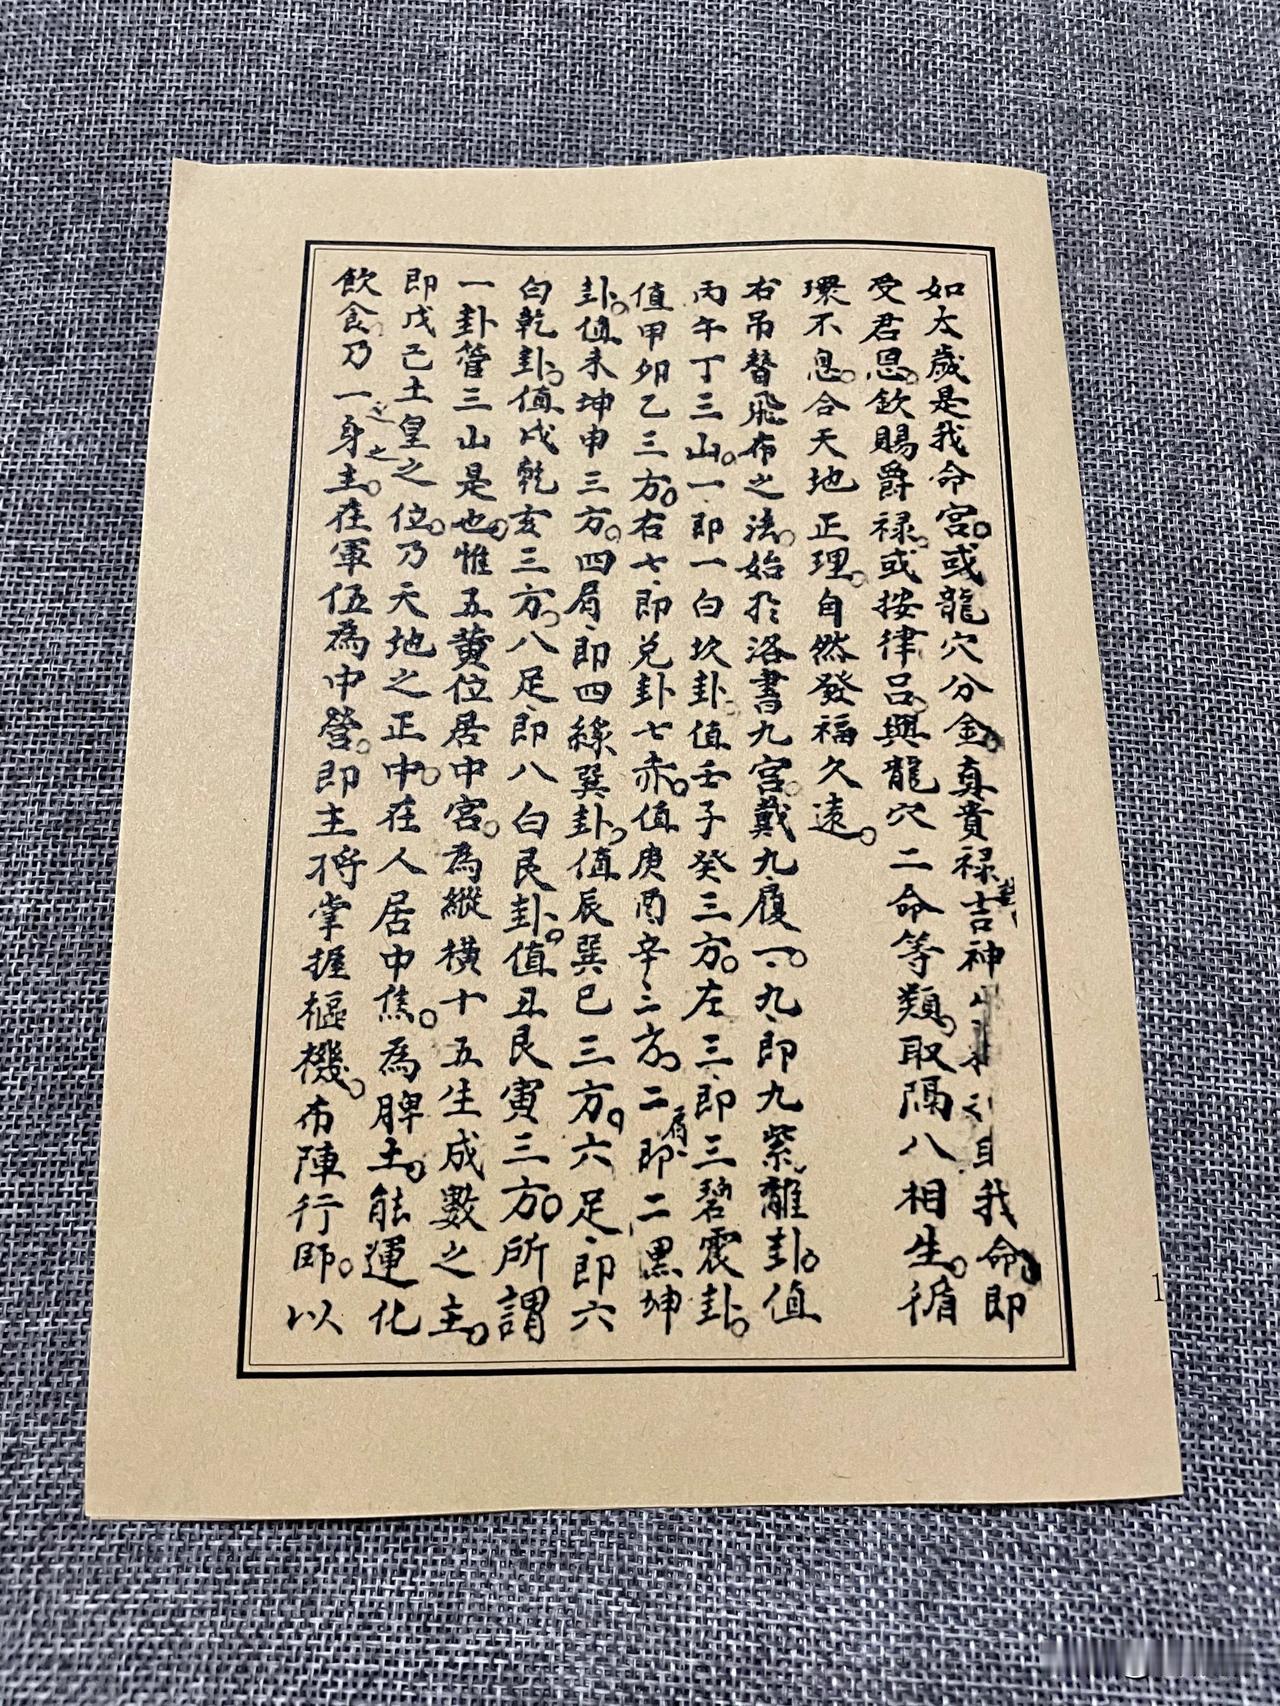 如太歲是我命宮。或龍穴分金。真貴祿吉神自我命。即
受君恩。欽賜爵祿。或按律呂。與龍穴二命等類。取隔八相生。循
環不息。合天地正理。自然發福久遠。
右吊替飛布之法。始於洛書九宮。戴九履一。九即九紫離卦。值
丙午丁三山。一即一白坎卦。值壬子癸三方。左三即三碧震卦。
值甲卯乙三方。右七即兌卦七赤。值庚酉辛三方。二肩即二黑坤
卦。值未坤申三方。四肩即四綠巽卦。值辰巽巳三方。六足即六
白乾卦。值戌乾亥三方。八足即八白艮卦。值丑艮寅三方。所謂
一卦管三山是也。惟五黃位居中宮。為縱橫十五生成數之主。
即戊己土皇之位。乃天地之正中。在人居中焦。為脾土。能運化
飲食。乃一身之主。在軍伍為中營。即主將掌握樞機。布陣行師。以
1